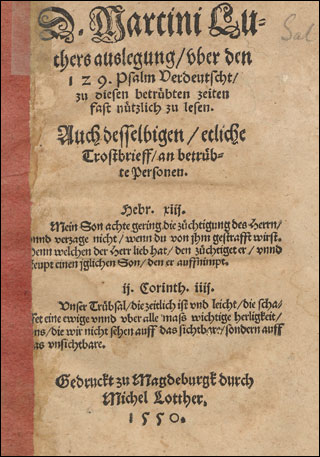 D. Martini Lu-
thers auslegung/vber den
129. Psalm Verdeutscht/
zu diesen betrübten zeiten
fast nützlich zu lesen.
Auch desselbigen/etliche
Trostbrieff/an betrüb-
te Personen.
Hebr. xij.
Mein Son achte gering die züchtigung des Herrn/
vnnd verzage nicht/wenn du von jhm gestrafft wirst.
Denn welchen der Herr lieb hat/den züchtiget er/vnnd
steupt einen jglichen Son/den er auffnimpt.
ij. Corinth. iiij.
Vnser Trübsal/die zeitlich ist vnd leicht/die scha-
fet eine ewige vnnd vber alle maß wichtige herligkeit/
uns/die wir nicht sehen auff das sichtbar:/sondern auff
das vnsichtbare.
Gedruckt zu Magdeburgk durch
Michel Lotther.
1550.
Sal